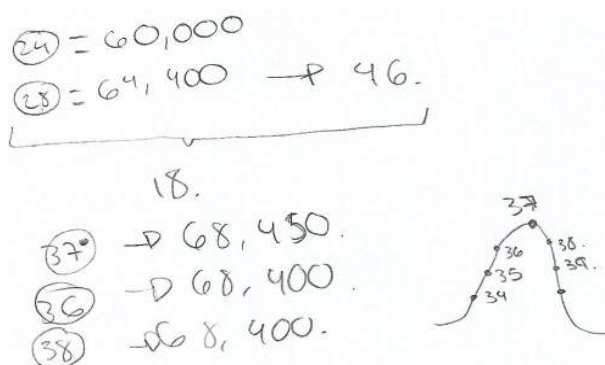 24 = 60,000
28 = 64,400 → 46.
18.
37 → 68,450.
36 → 68,400.
38 → 68,400.
37
36
35
34
38.
39.